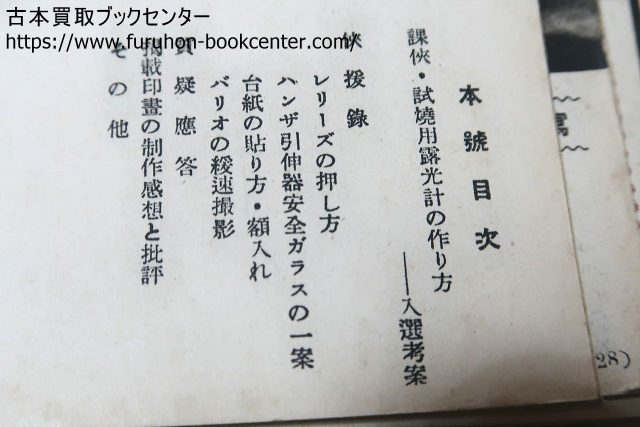 古本買取ブックセンター
https://www.furuhon-bookcenter.com/
本號目次
課俠・試燒用露光計の作り方
――入選考案
俠援錄
レリーズの押し方
ハンザ引伸器安全ガラスの一案
台紙の貼り方・額入れ
バリオの緩速撮影
質疑應答
掲載印畫の制作感想と批評
その他
寫
28)